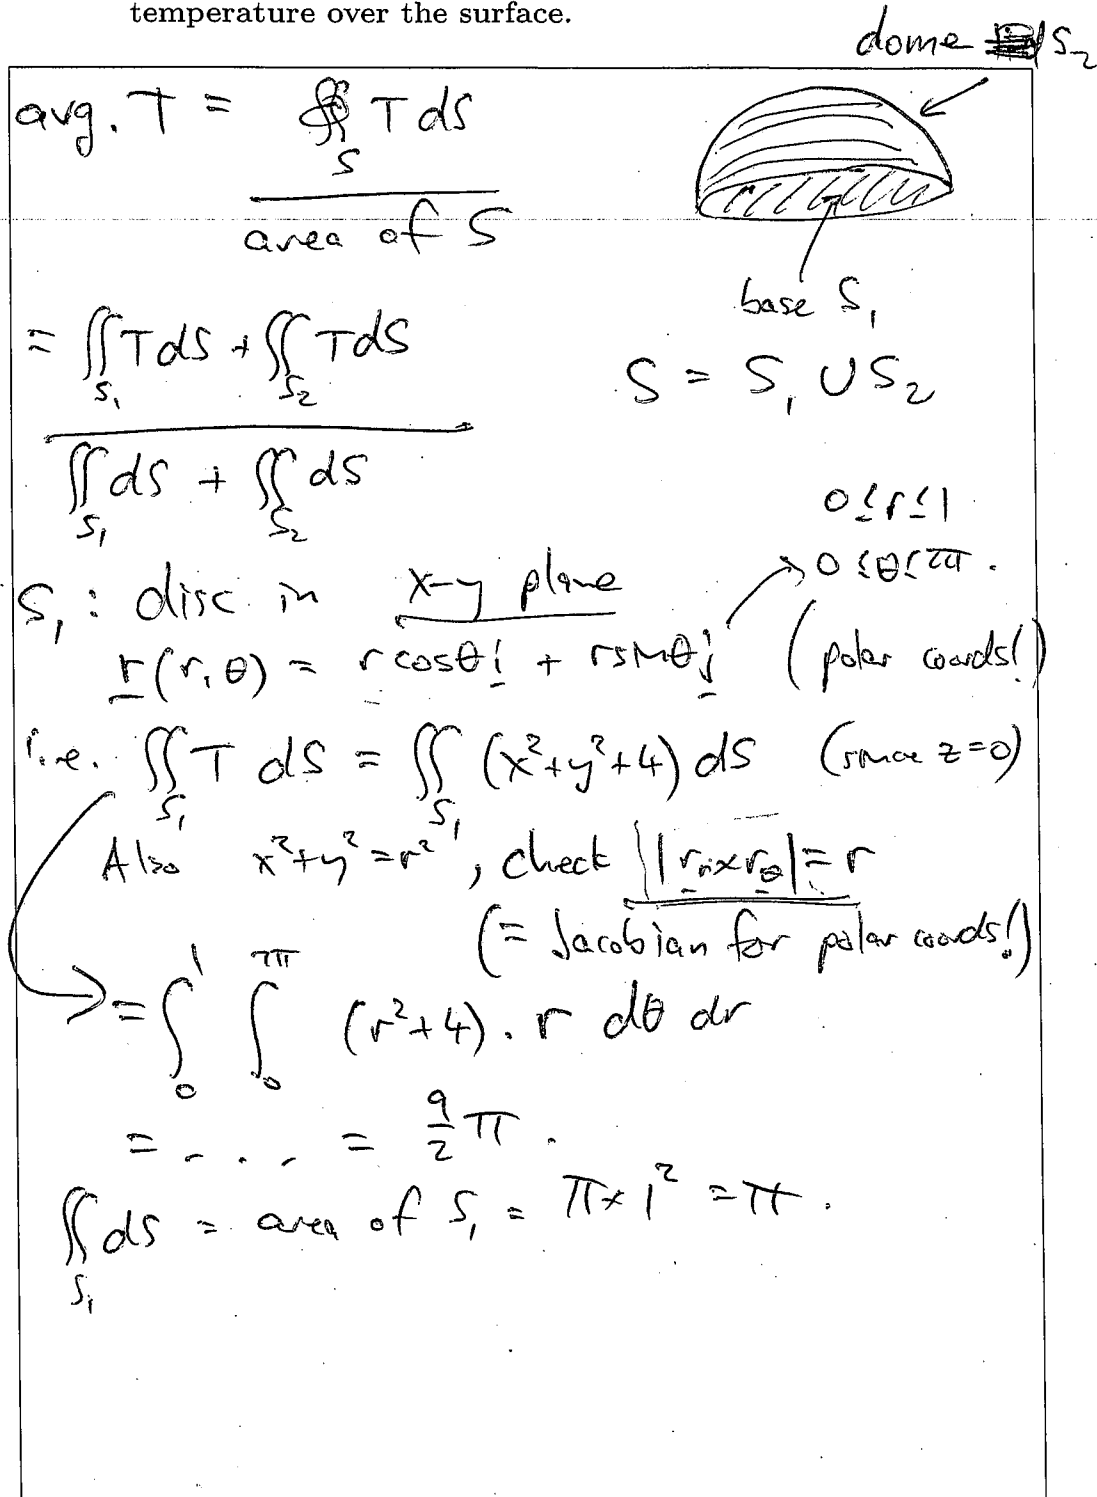 temperature over the surface.
dome S₂
avg. T = ∯_S T dS / area of S
base S₁
= ∬_{S₁} T dS + ∬_{S₂} T dS / ∬_{S₁} dS + ∬_{S₂} dS
S = S₁ ∪ S₂
0 ≤ r ≤ 1
0 ≤ θ ≤ 2π.
S₁ : disc in x-y plane
r(r, θ) = r cosθ i + r sinθ j (polar coords!)
i.e. ∬_{S₁} T dS = ∬_{S₁} (x²+y²+4) dS (since z=0)
Also x²+y²=r², check |r_r × r_θ| = r
(= Jacobian for polar coords!)
= ∫₀¹ ∫₀^{2π} (r²+4) . r dθ dr
= . . . . = 9/2 π .
∬_{S₁} dS = area of S₁ = π × 1² = π .